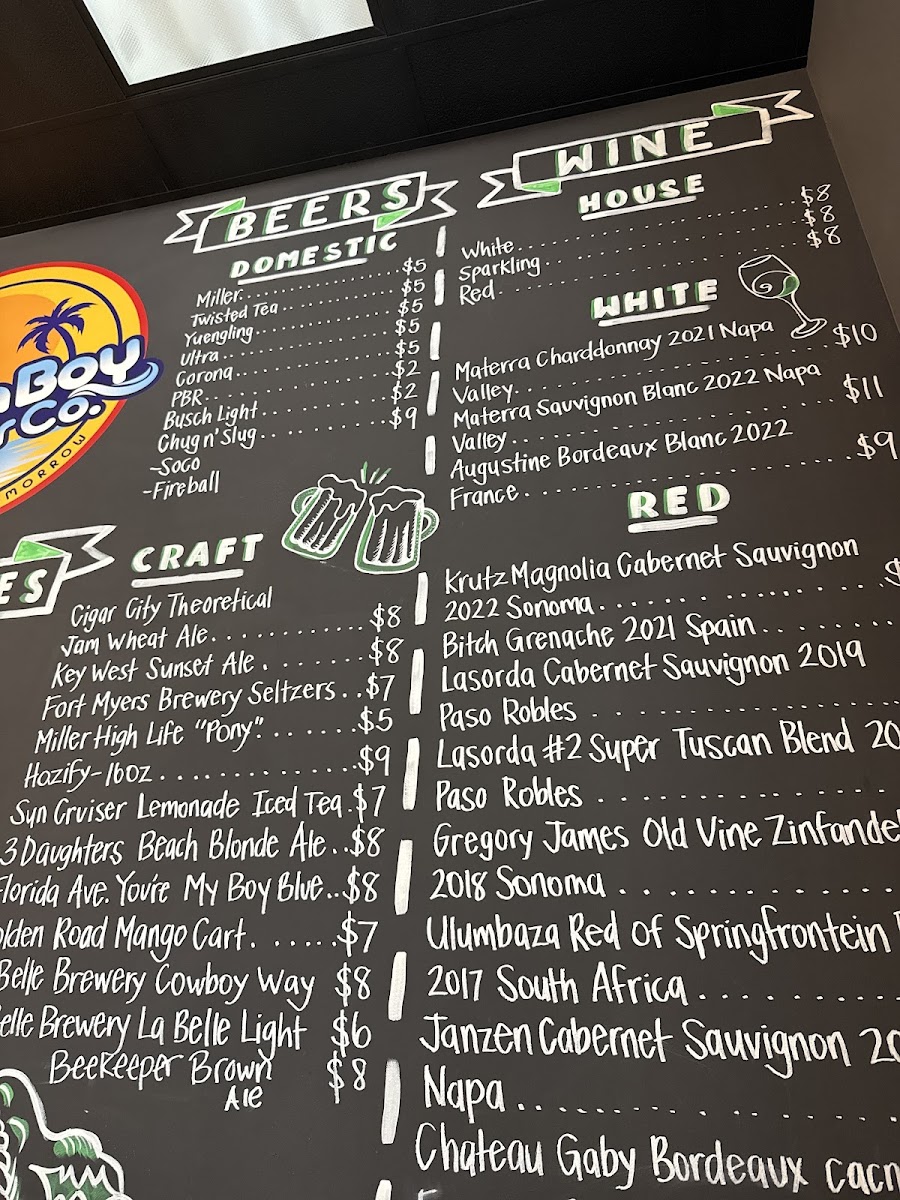 BEERS
DOMESTIC
Miller..................$5
Twisted Tea..............$5
Yuengling...............$5
Ultra...................$5
Corona..................$5
PBR....................$2
Busch Light..............$2
Chug n' Slug.............$9
-Soco
-Fireball
CRAFT
Cigar City Theoretical
Jam Wheat Ale............$8
Key West Sunset Ale.......$8
Fort Myers Brewery Seltzers..$7
Miller High Life "Pony".......$5
Hazify-16oz..............$9
Sun Cruiser Lemonade Iced Tea.$7
3 Daughters Beach Blonde Ale..$8
Florida Ave. You're My Boy Blue..$8
olden Road Mango Cart.......$7
Belle Brewery Cowboy Way $8
elle Brewery La Belle Light $6
BeeKeeper Brown $8
Ale
WINE
HOUSE
White......................$8
Sparkling...................$8
Red.......................$8
WHITE
Materra Charddonnay 2021 Napa
Valley......................$10
Materra Sauvignon Blanc 2022 Napa
Valley......................$11
Augustine Bordeaux Blanc 2022
France.....................$9
RED
Krutz Magnolia Cabernet Sauvignon
2022 Sonoma................$
Bitch Grenache 2021 Spain.........
Lasorda Cabernet Sauvignon 2019
Paso Robles................
Lasorda #2 Super Tuscan Blend 20
Paso Robles................
Gregory James Old Vine Zinfandel
2018 Sonoma..............
Ulumbaza Red of Springfrontein
2017 South Africa...........
Janzen Cabernet Sauvignon 20
Napa....................
Chateau Gaby Bordeaux cacn
Boy
Co.
MORROW
ES